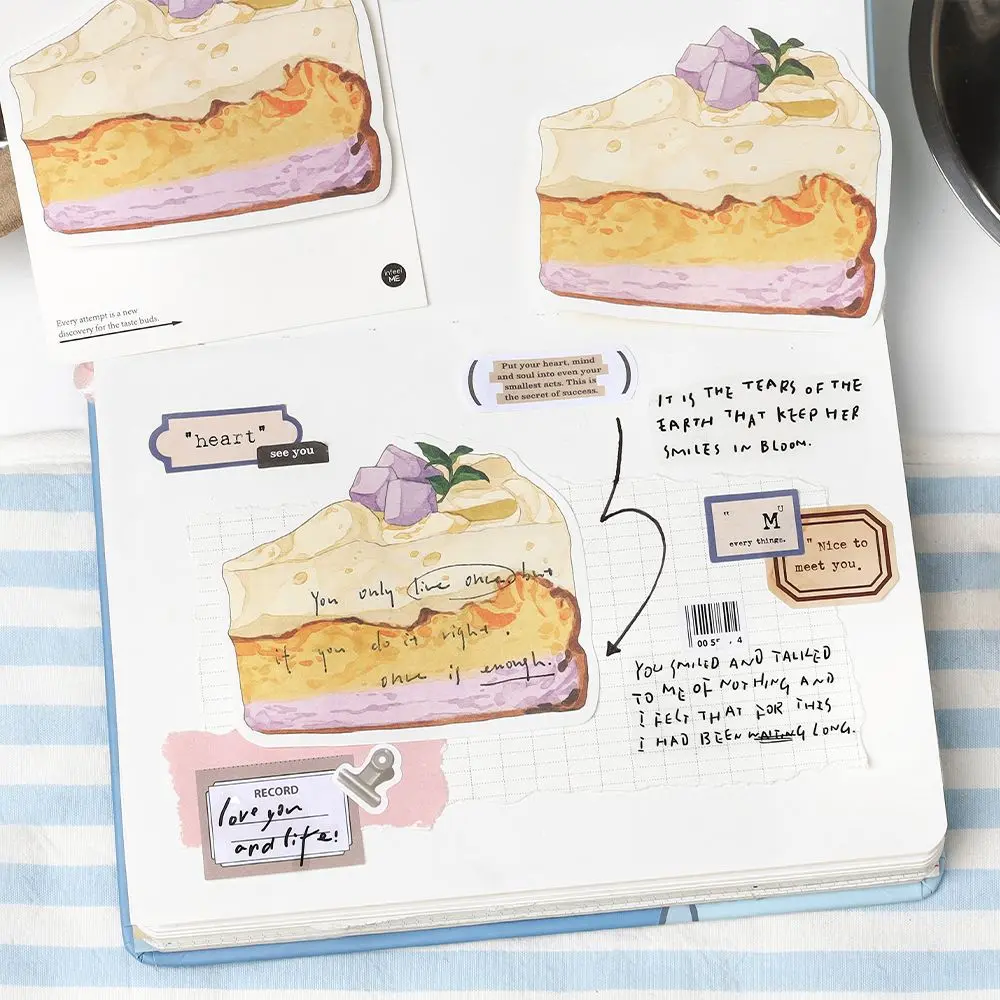 Every attempt is a new
discovery for the taste buds.
infeel
ME
Put your heart, mind
and soul into even your
smallest acts. This is
the secret of success.
IT IS THE TEARS OF THE
EARTH THAT KEEP HER
SMILES IN BLOOM.
"heart"
see you
" M U
every things.
" Nice to
meet you.
You only live once, but
if you do it right.
once is enough.
00 5 . 4
YOU SMILED AND TALKED
TO ME OF NOTHING AND
I FELT THAT FOR THIS
I HAD BEEN WAITING LONG.
RECORD
love you
and life!